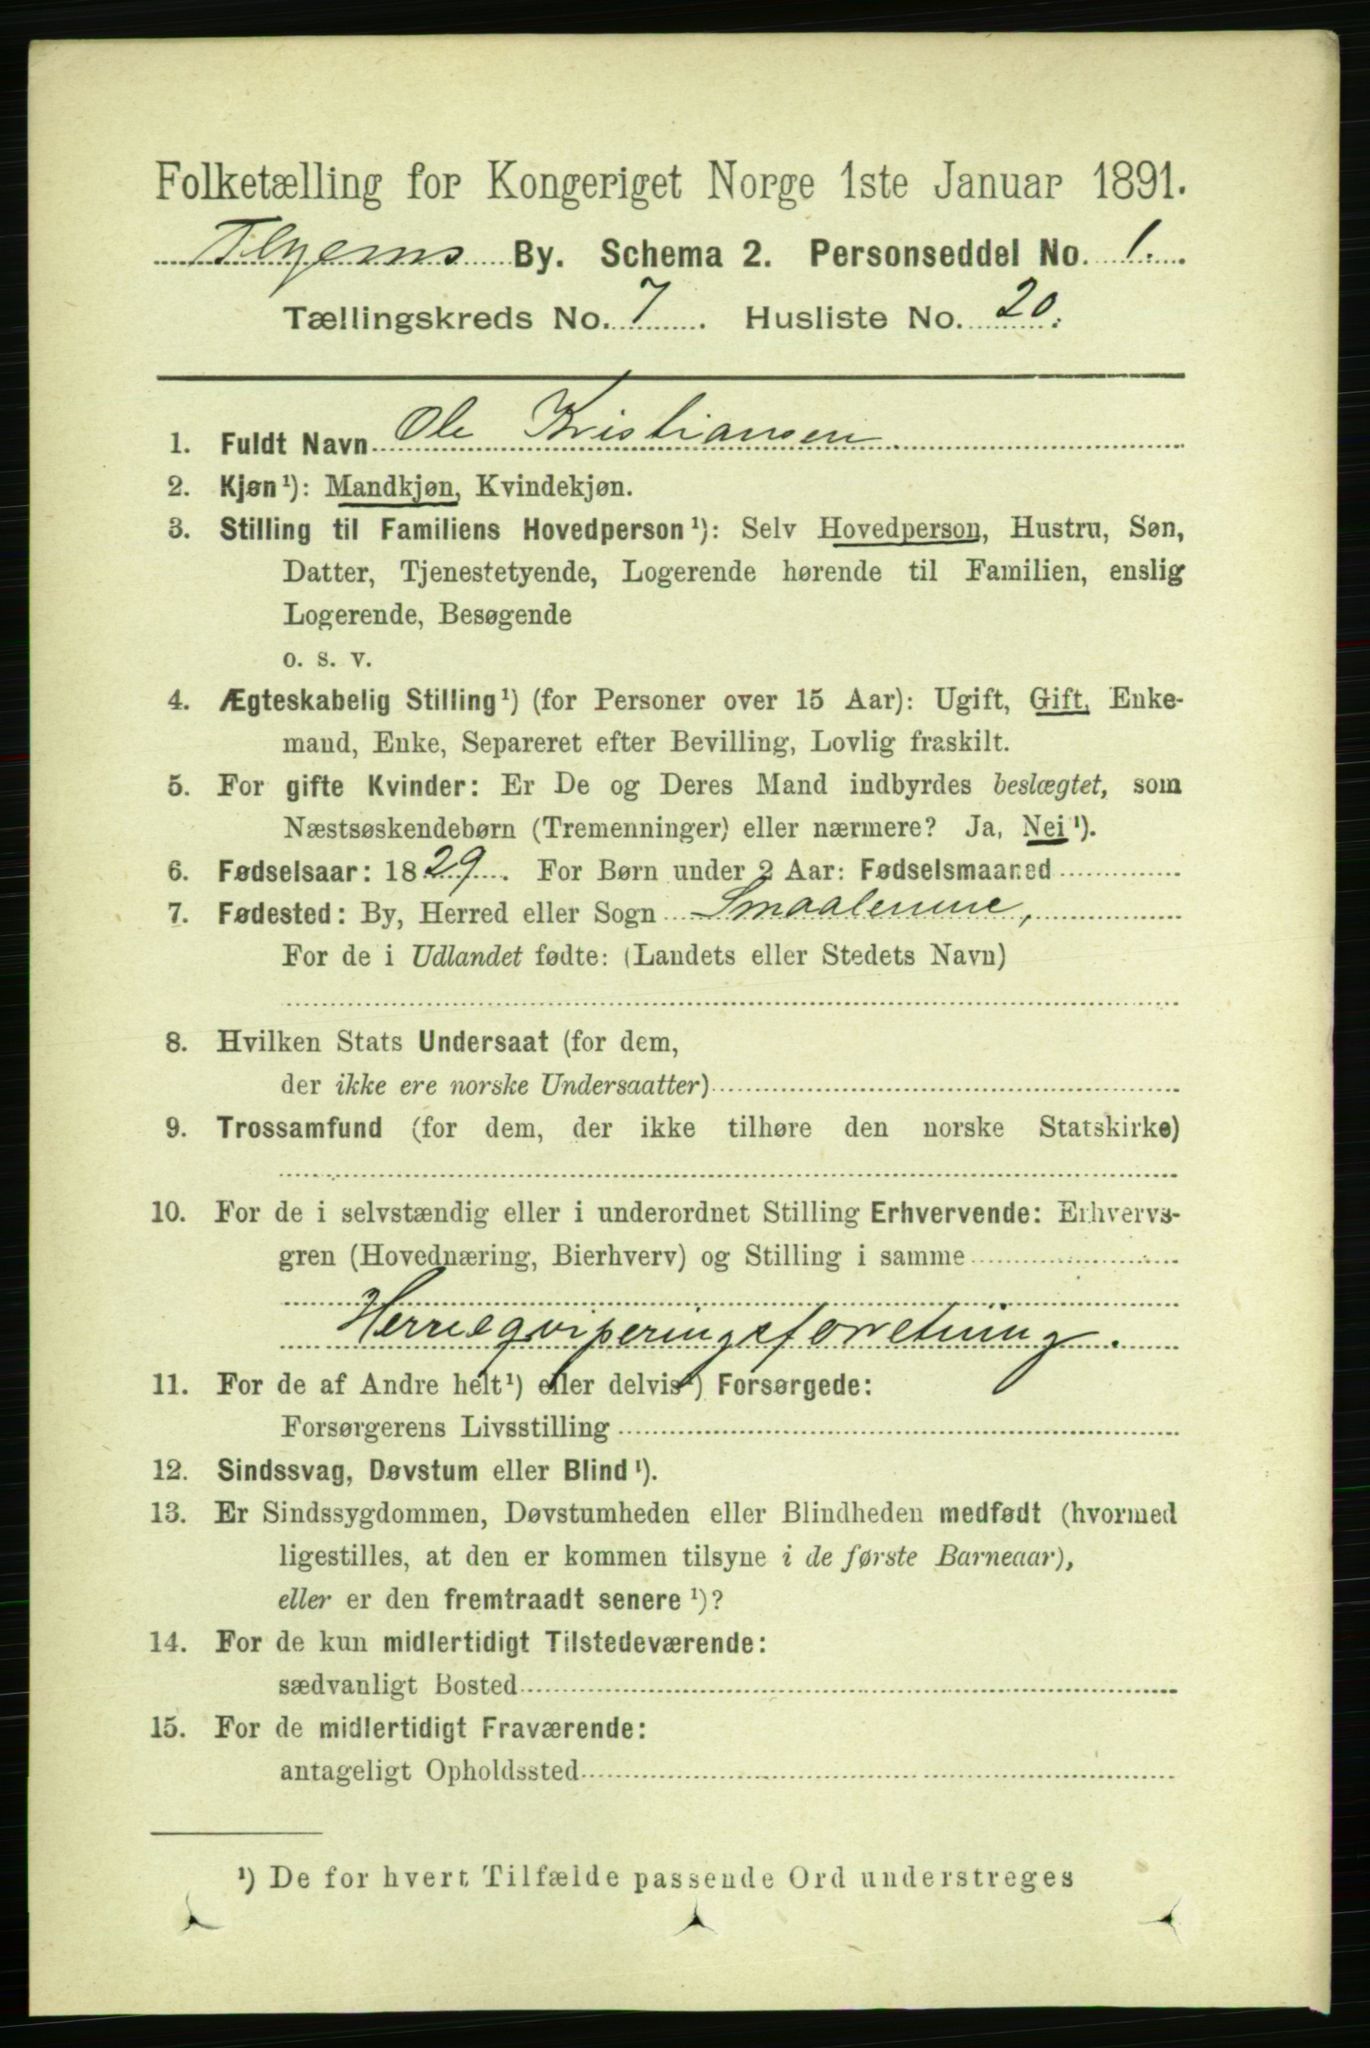 Folketælling for Kongeriget Norge 1ste Januar 1891.
By. Schema 2. Personseddel No. 1.
Tællingskreds No. 7. Husliste No. 20.
1. Fuldt Navn Ole Kristiansen
2. Kjøn¹): Mandkjøn, Kvindekjøn.
3. Stilling til Familiens Hovedperson¹): Selv Hovedperson, Hustru, Søn,
Datter, Tjenestetyende, Logerende hørende til Familien, enslig
Logerende, Besøgende
o. s. v.
4. Ægteskabelig Stilling¹) (for Personer over 15 Aar): Ugift, Gift, Enke-
mand, Enke, Separeret efter Bevilling, Lovlig fraskilt.
5. For gifte Kvinder: Er De og Deres Mand indbyrdes beslægtet, som
Næstsøskendebørn (Tremenninger) eller nærmere? Ja, Nei¹).
6. Fødselsaar: 1829. For Børn under 2 Aar: Fødselsmaaned
7. Fødested: By, Herred eller Sogn Smaalenene,
For de i Udlandet fødte: (Landets eller Stedets Navn)
8. Hvilken Stats Undersaat (for dem,
der ikke ere norske Undersaatter)
9. Trossamfund (for dem, der ikke tilhøre den norske Statskirke)
10. For de i selvstændig eller i underordnet Stilling Erhvervende: Erhvervs-
gren (Hovednæring, Bierhverv) og Stilling i samme
Herreeqviperingsforretning.
11. For de af Andre helt¹) eller delvis¹) Forsørgede:
Forsørgerens Livsstilling
12. Sindssvag, Døvstum eller Blind¹).
13. Er Sindssygdommen, Døvstumheden eller Blindheden medfødt (hvormed
ligestilles, at den er kommen tilsyne i de første Barneaar),
eller er den fremtraadt senere¹)?
14. For de kun midlertidigt Tilstedeværende:
sædvanligt Bosted
15. For de midlertidigt Fraværende:
antageligt Opholdssted
¹) De for hvert Tilfælde passende Ord understreges